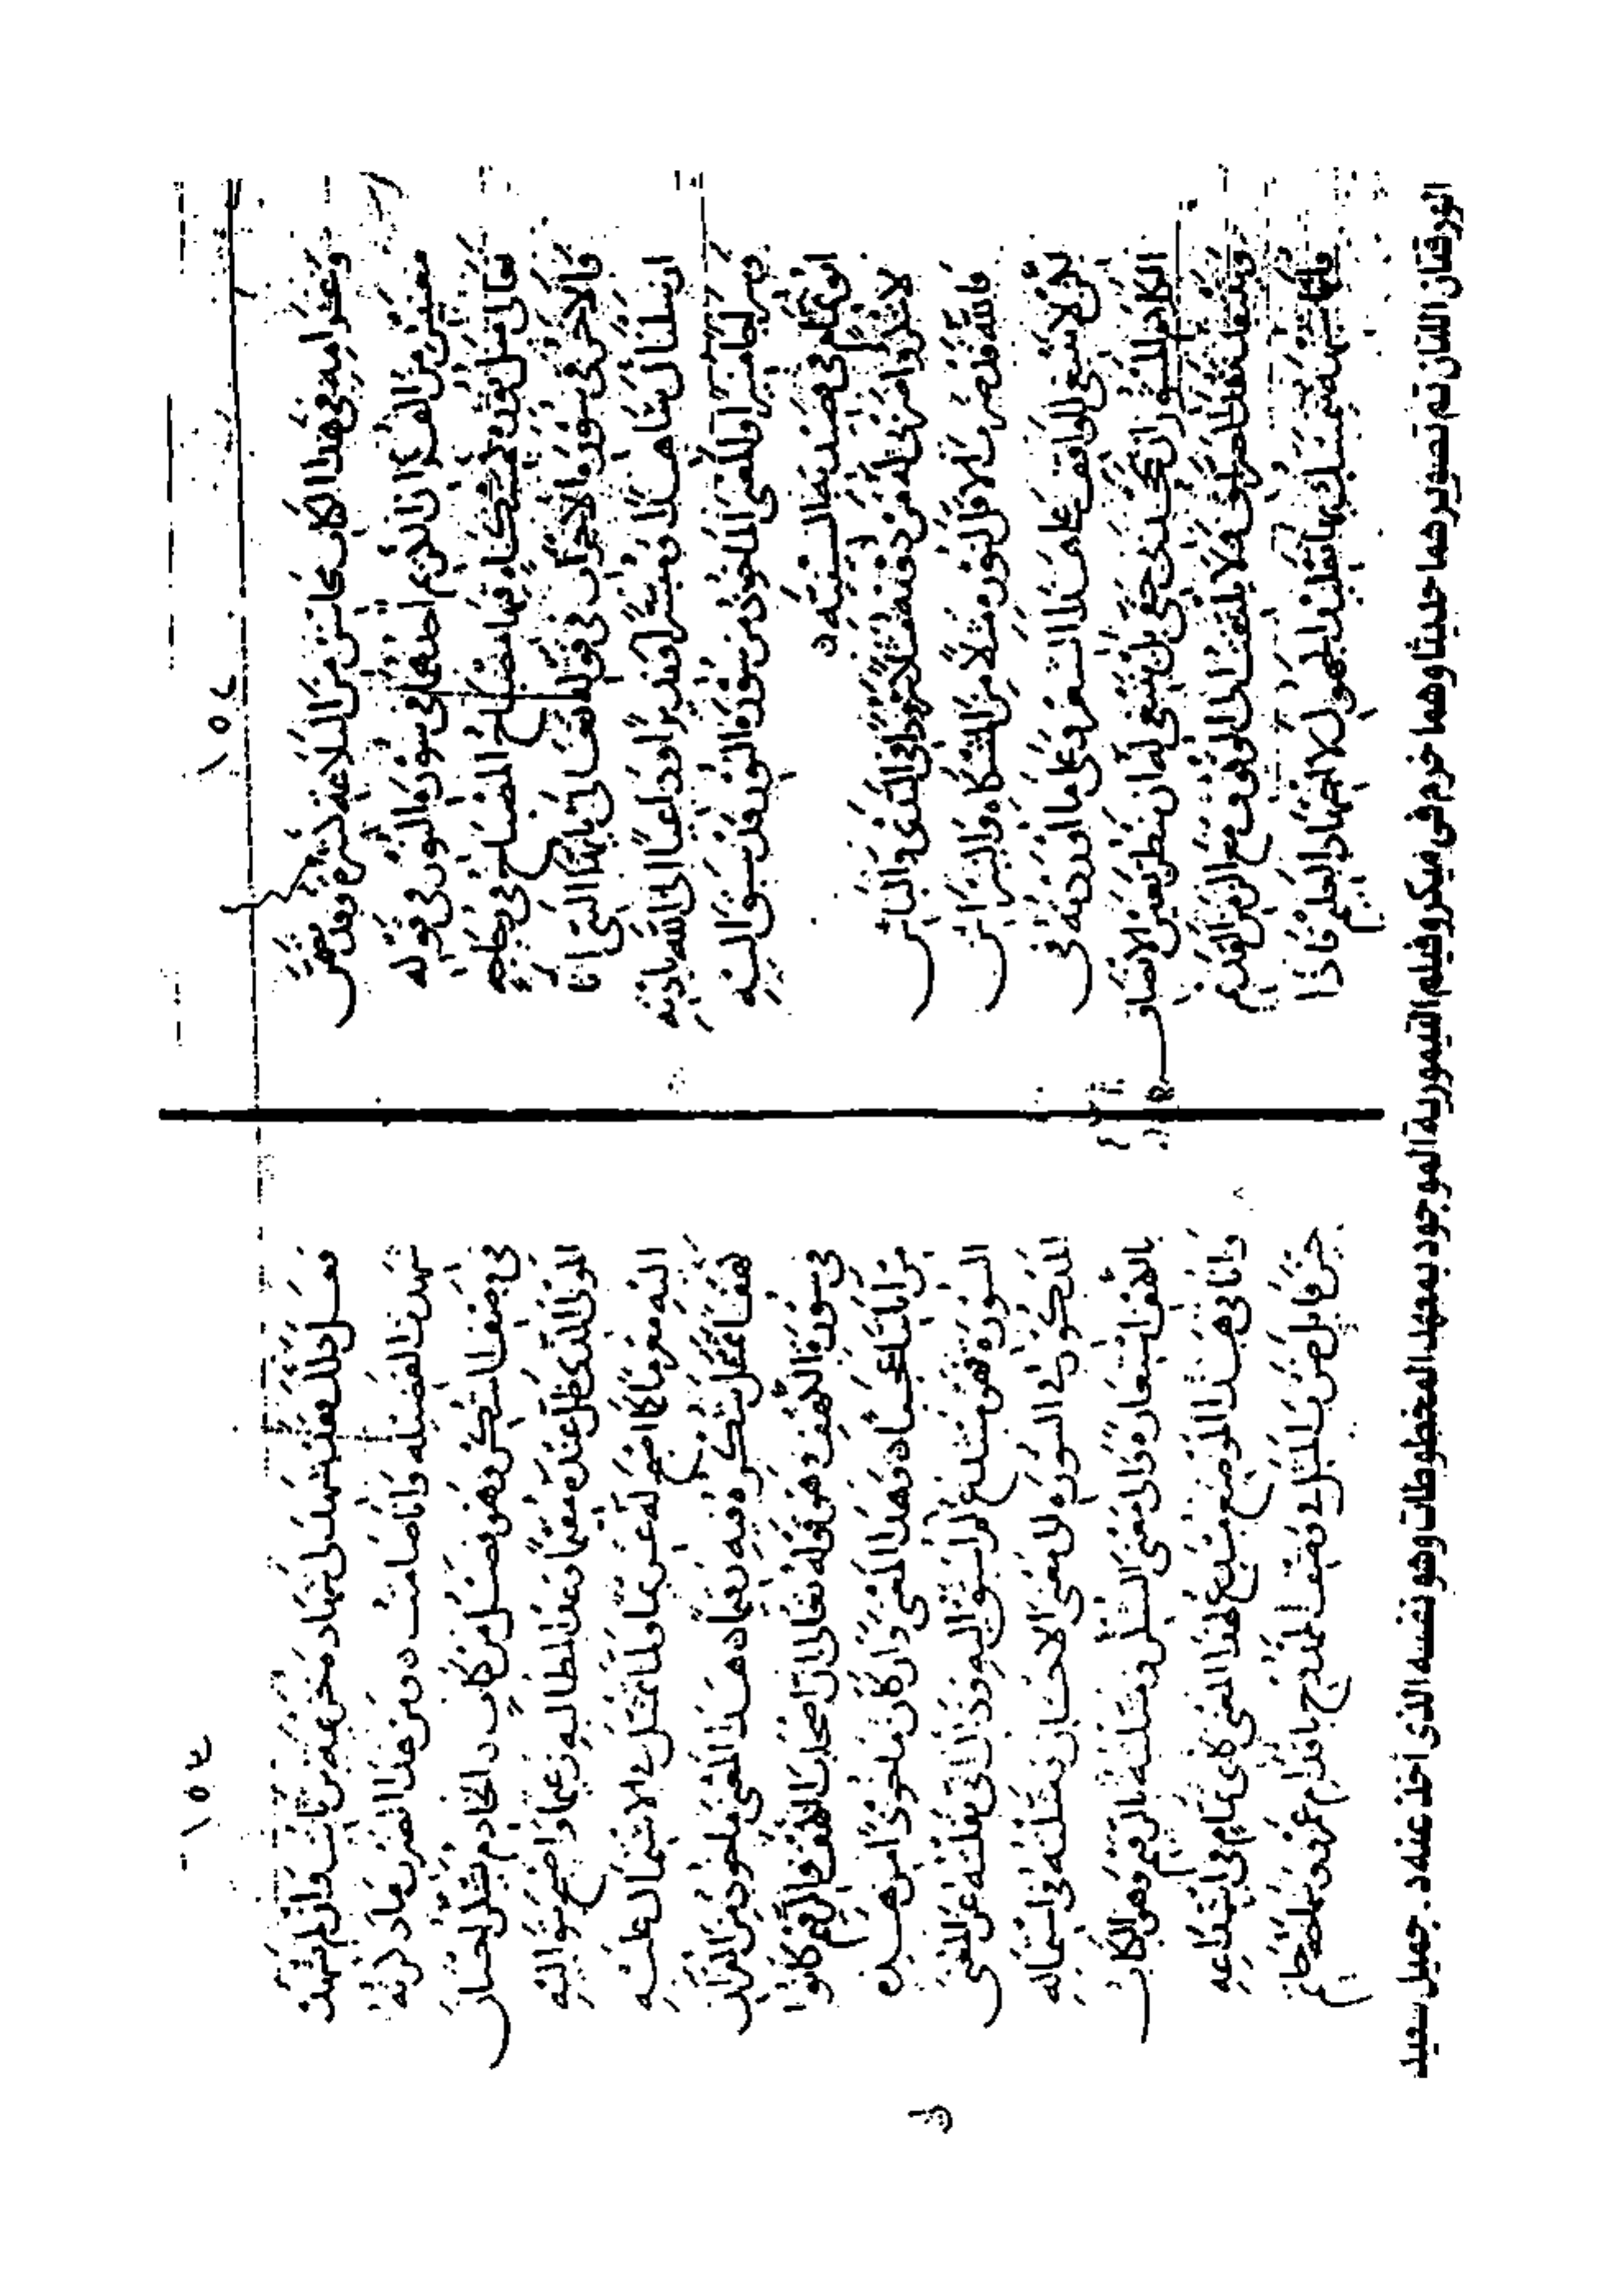 ١٥٢
في هذا الكتاب محاسن من البلاغة بعض
معنيين من القرآن الكريم احدهما في سورة النور في قوله
تعالى مثل نوره كمشكاة فيها مصباح المصباح في زجاجة
والاخر في سورة الاحزاب في قوله تعالى يا ايها النبي انا
ارسلناك شاهدا ومبشرا ونذيرا وداعيا الى الله باذنه
وسراجا منيرا والمعنى الماخوذ من سورة النور قد سبق اليه
ابو تمام في قصيدته السينية ه
لا تنكروا ضربي له من دونه مثلا شرودا في الندى والباس
فالله قد ضرب الاقل لنوره مثلا من المشكاة والنبراس
لكن لا ينبغي للواقف على هذا الشعر وعلى ما اوردته في
الكلام المنثور ان يجحدني حقي بل ينبغي له ان ينظر بعين الانصاف
وينتقد نقد الصيرفي ولا يلتفت الى الوقوف مع الزمن القديم
فانه شبهة يتمسك بها تقليد الجهول لا اجتهاد العليم فاذا
١٥٤
فعل ذلك فقد شهد لي شهادة خزيمة بن ثابت وان لم يشهد
شهدت الفضيلة وانا صامت ه ومن هذا الضرب ما ذكرته
في وصف الشكر وهو فصل من كتاب الخادم يشكر احسان
المولى الذي ظل عنده مقيما وغدا بمطالبه زعيما واضحى بتواليه
اليه مغرما كما اضحى له غريما ولما تمثل في الاشتمال عليه
كهفا تمثل شكره فيه رقيما ه هذا المعنى ماخوذ من القران
في سورة الكهف وهو قوله تعالى ان اصحاب الكهف والرقيم كانوا
من اياتنا عجبا ه وهذا المعنى وان كان ماخوذا من هذه
السورة فهو مبتدع لم اسبق اليه وذاك اني نقلته عن المعنى
المذكور في السورة الى معنى الاحسان فمثلته في اشتماله
بالكهف استعارة والى معنى الشكر فمثلته بالرقيم وهو الكتاب
وانا في هذا الموضع مبتدع لهذا المعنى كابي تمام في ابتداعه
حين قابل ضرب المثل في وصف الممدوح باقدام عمرو وسماحة حاتم
الورقتان اللتان تم تصويرهما حديثا وهما خرم في ميكروفيلم التيمورية الموجود بمعهد المخطوطات وهو نفسه الذى أخذ عنه د. جميل سعيد